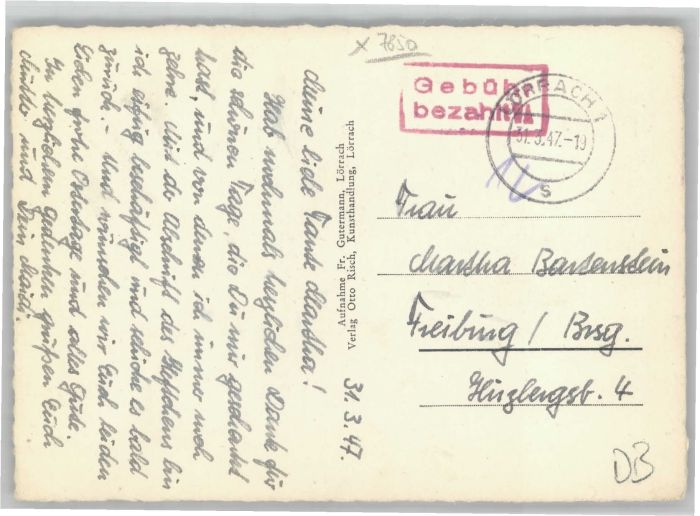 x 7850
Gebühr
bezahlt
LÖRRACH 1
31.3.47.-19
s
31. 3. 47.
Meine liebe Tante Martha!
Hab nochmals herzlichen Dank für
die schönen Tage, die Du mir geschenkt
hast, und von denen ich immer noch
zehre. Mit der Abschrift des Heftchens bin
ich eifrig beschäftigt und schicke es bald
zurück. - Und wünschen wir Euch beiden
Lieben frohe Ostertage und alles Gute.
In herzlichem Gedenken grüßen Euch
Mutti und Dein
Aufnahme Fr. Gutermann, Lörrach
Verlag Otto Risch, Kunsthandlung, Lörrach
Frau
Martha Bartenstein
Freiburg / Brsg.
4
DB